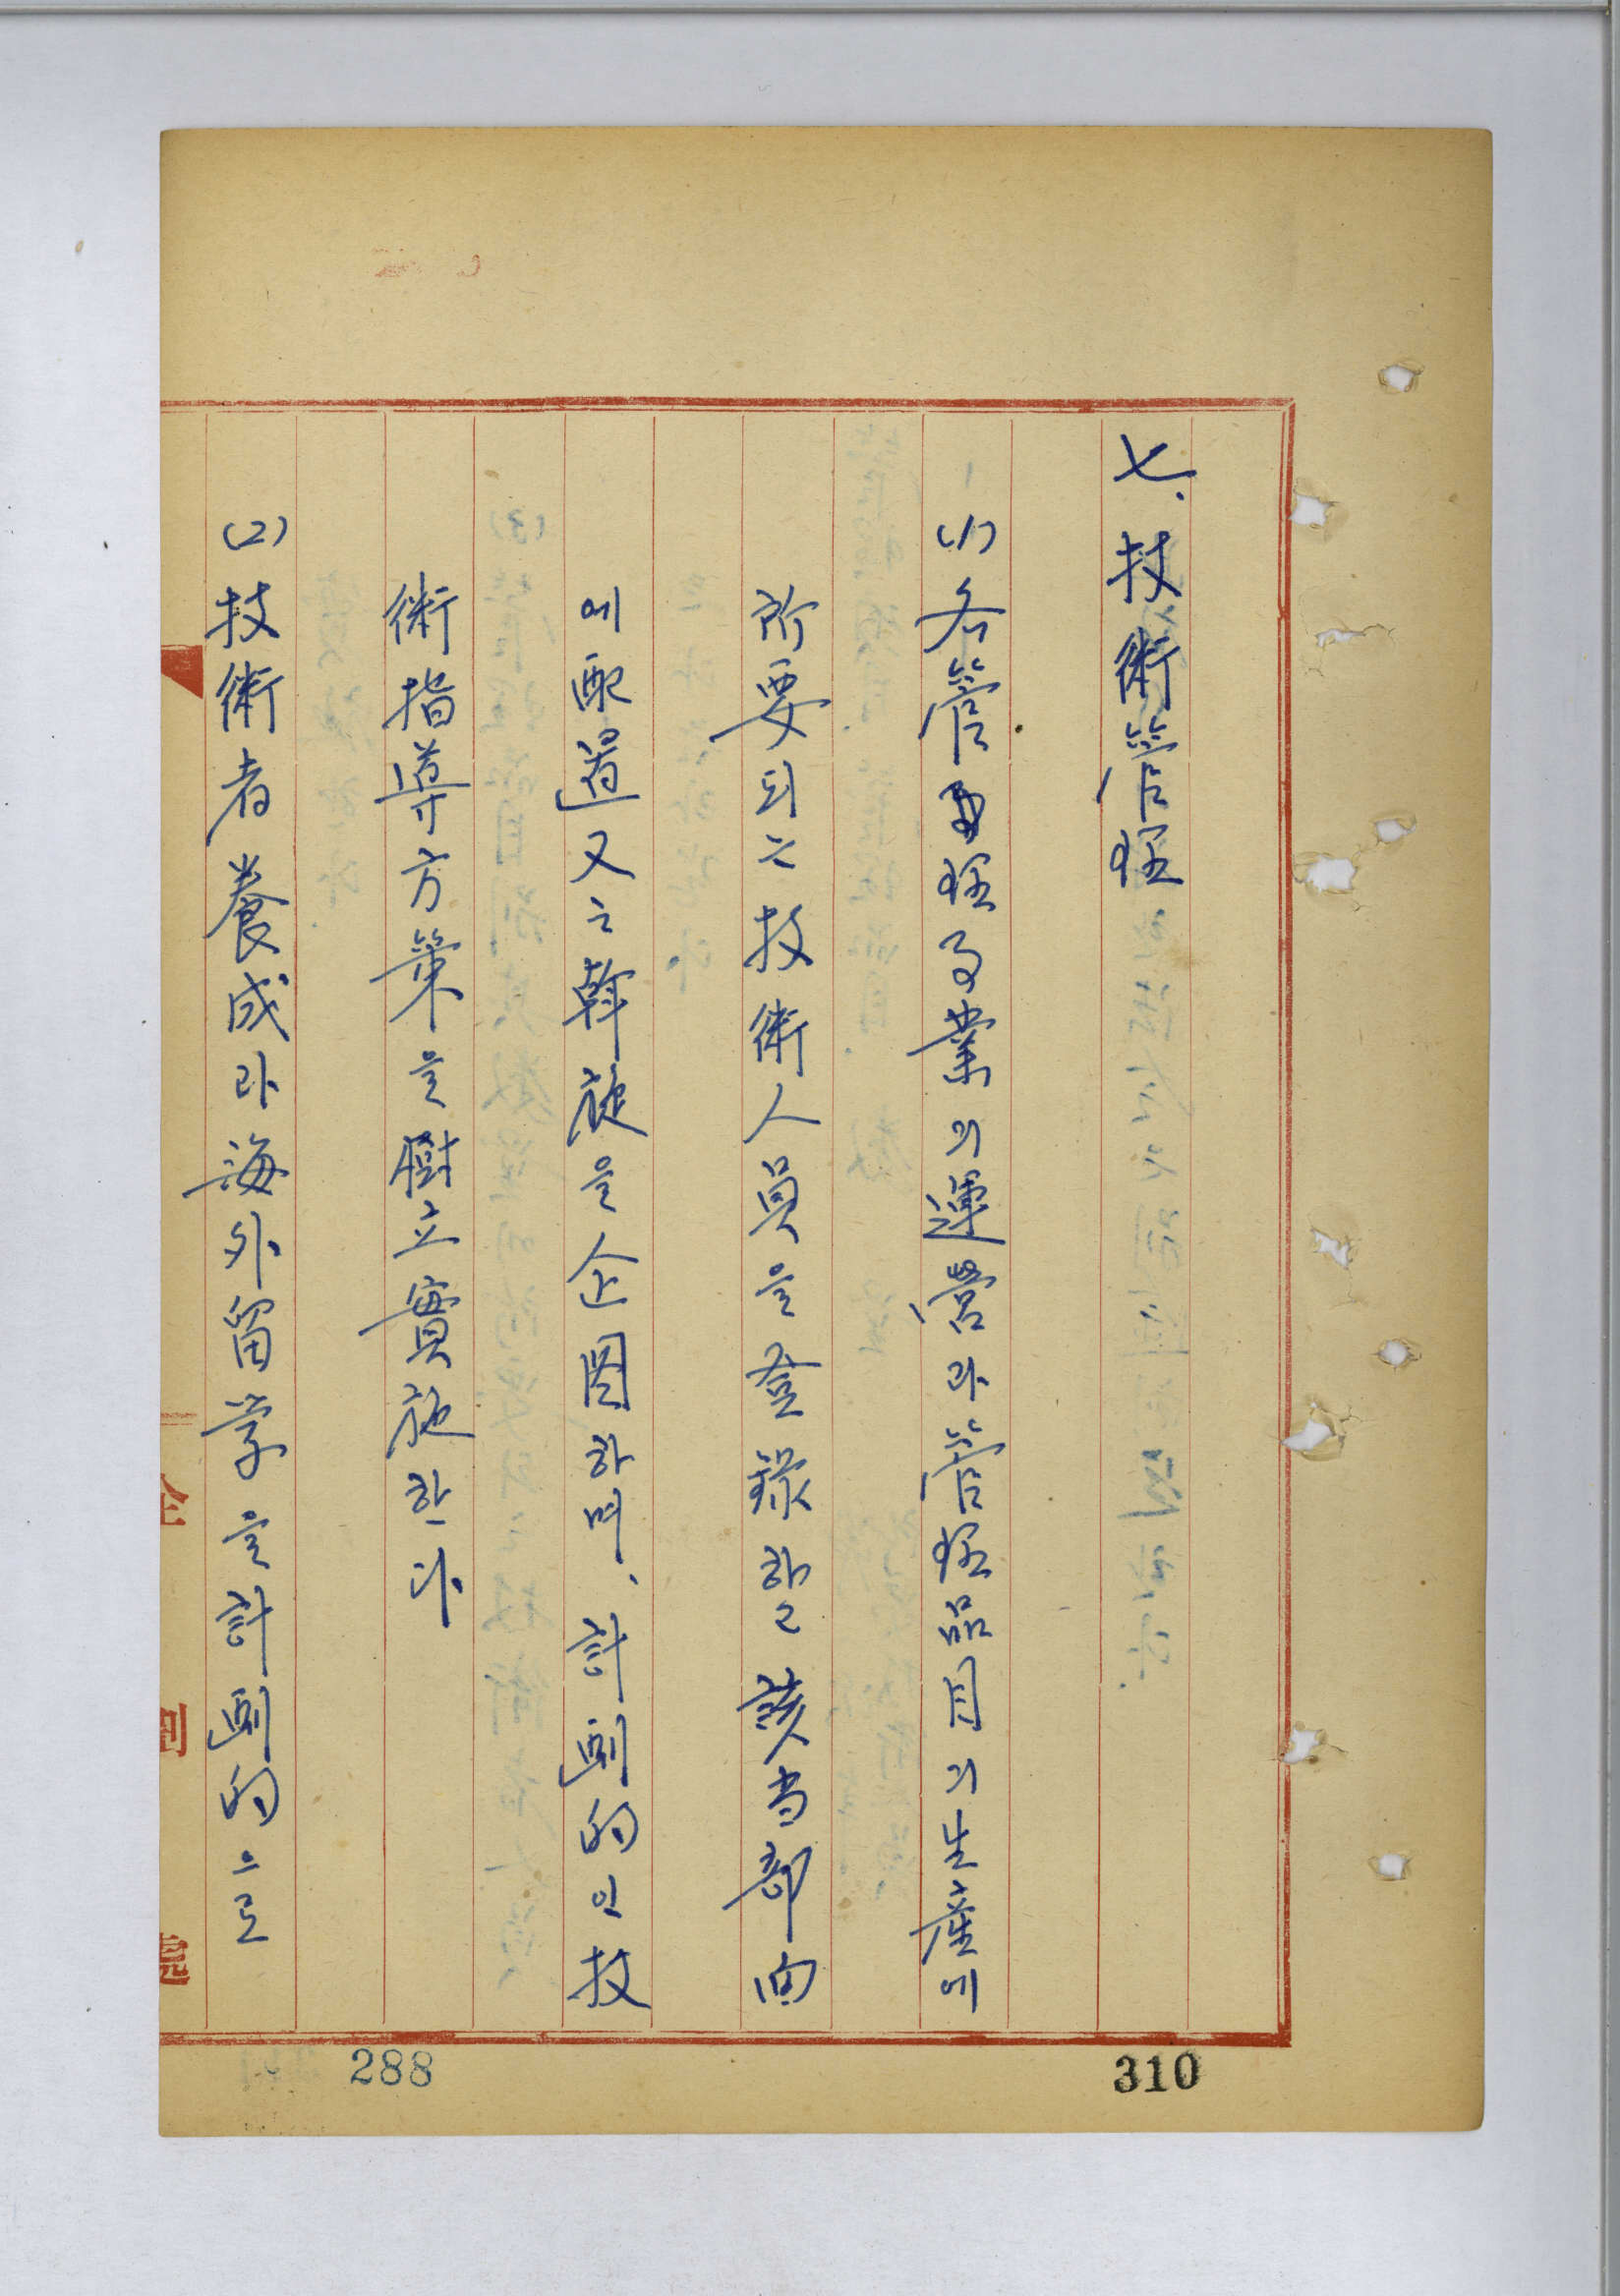 七. 技術管理
(1) 各管理事業의 運営과 管理品目의 生産에
所要되는 技術人員을 登録하고 該当部面
에 配置又는 斡旋을 企図하며, 計劃的인 技
術指導方策을 樹立實施한다
(2) 技術者養成과 海外留学을 計劃的으로
288
310